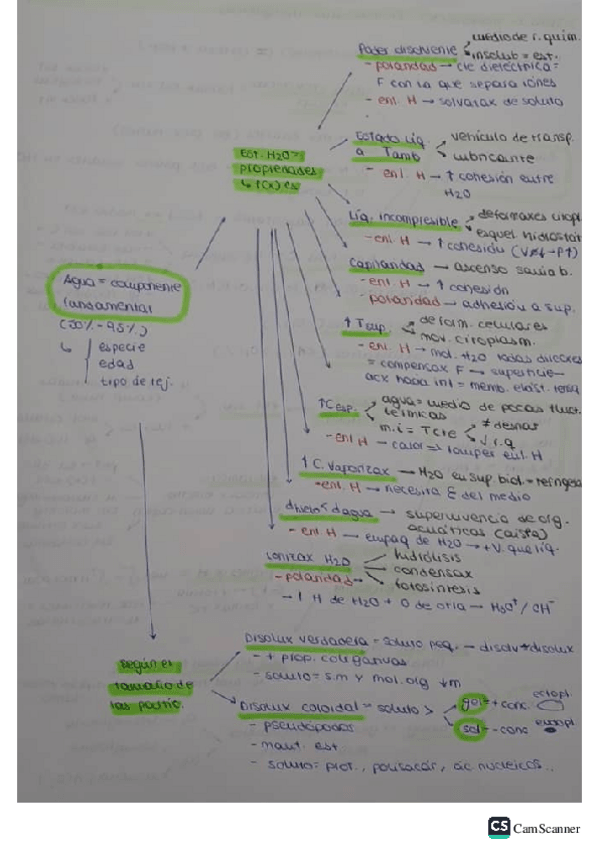 Poder disolvente
medio de r. quím.
insolub = est.
- polaridad → cte dieléctrica =
F con la que separa iones
- enl. H → solvatax de soluto
Estado líq.
a Tamb
vehículo de transp.
lubricante
- enl. H → ↑ cohesión entre
H2O
Est. H2O =
propiedades
↳ f(x)es
Líq. incompresible
deformaxes citopl.
esquel hidrostát
- enl. H → ↑ cohesión
Capilaridad → ascenso savia b.
- enl. H → ↑ cohesión
- polaridad → adhesión a sup.
Agua = componente
fundamental
(50%-95%)
↳ especie
edad
tipo de tej.
↑ Tsup.
deform. celulares
mov. citoplasm.
- enl. H → mol. H2O todas direcces
= compensax F → superficie
acx hacia int = memb. elást. tensa
↑ C esp.
agua = medio de pocas fluct.
térmicas
m.i = T cte
≠ desnat
√ r.q
- enl H → calor => romper enl. H
↑ C. Vaporizax → H2O en sup. biol. = refriger
- enl. H → necesita E del medio
dhielo < dagua → supervivencia de org.
acuáticos (aisla)
- enl. H → empaq de H2O → + V. que líq.
Ionizax H2O
hidrólisis
condensax
fotosíntesis
- polaridad
→ 1 H de H2O + O de otra → H3O+ / OH-
Según el
tamaño de
las partíc.
Disolux verdadera = soluto peq. → disolv + disolux
- + prop. coligativas
- soluto = s.m y mol. org ↓m
Disolux coloidal = soluto >
gel = + conc.
ectopl.
sol = - conc
endopl
- pseudópodos
- mant. est
- soluto = prot., polisacár, ác. nucleicos...
CS CamScanner